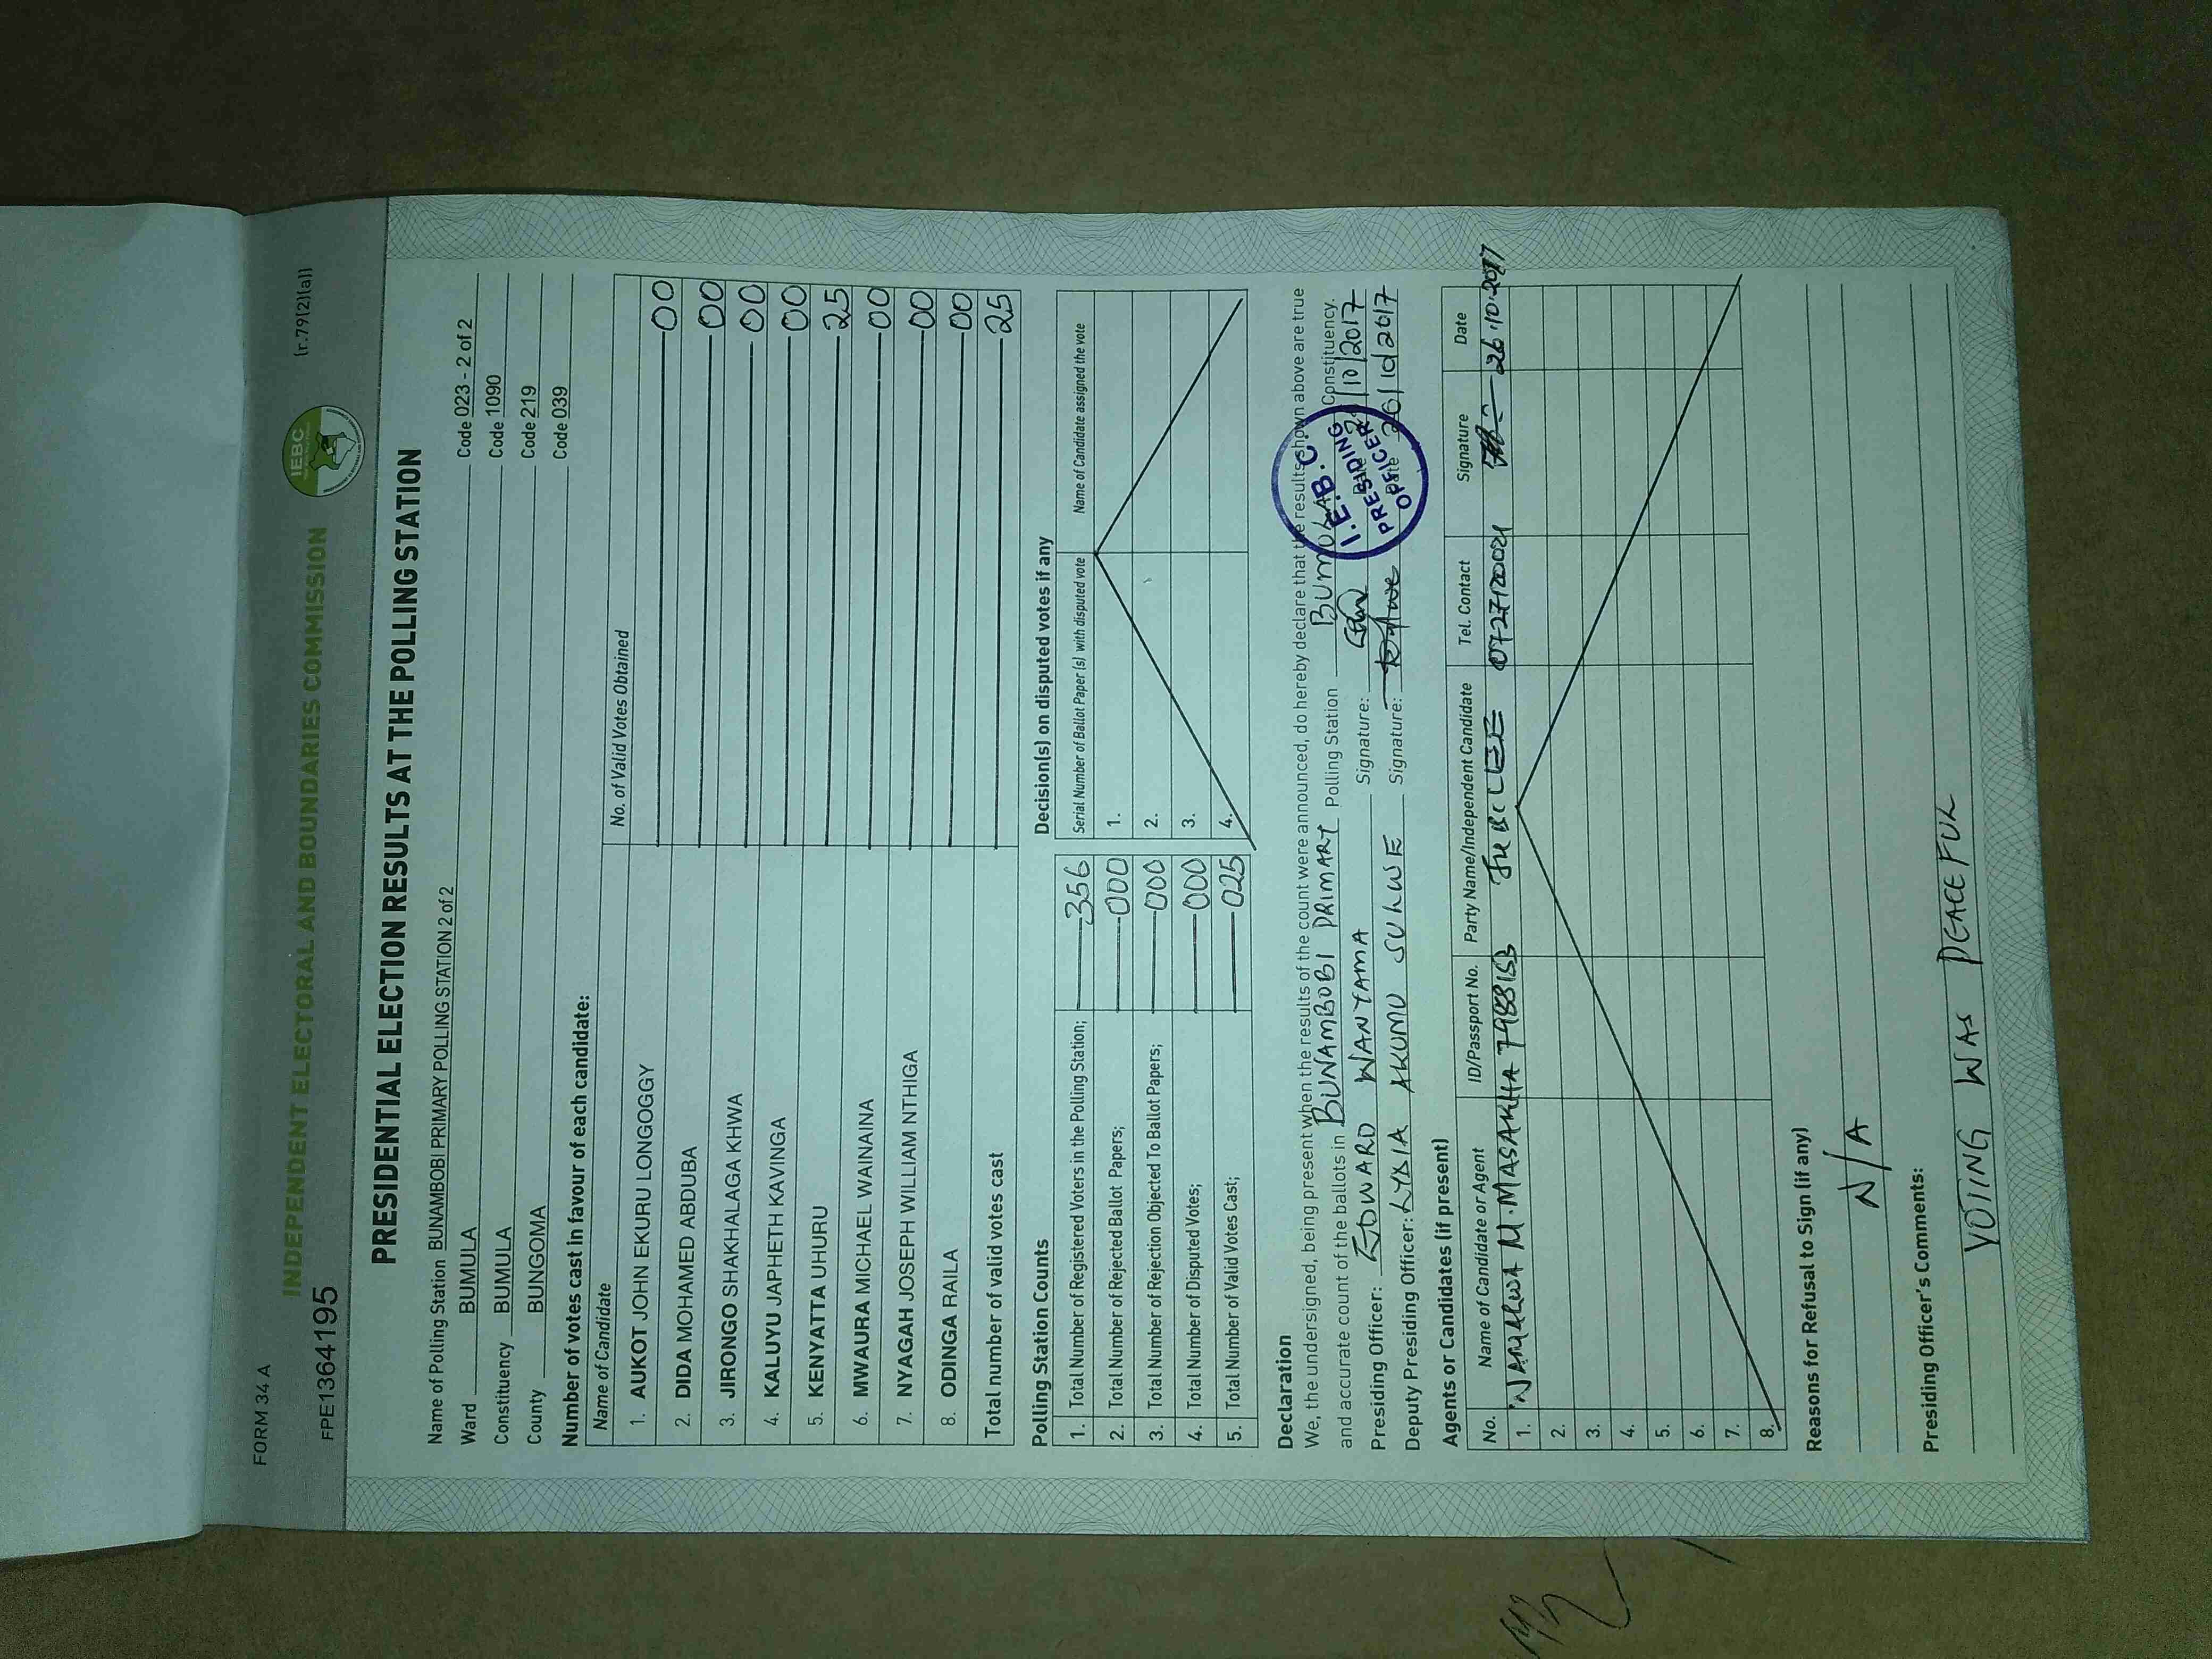 FORM 34 A
(r.79(2)(a))
IEBC
INDEPENDENT ELECTORAL AND BOUNDARIES COMMISSION
FPE1364195
PRESIDENTIAL ELECTION RESULTS AT THE POLLING STATION
Name of Polling Station BUNAMBOBI PRIMARY POLLING STATION 2 of 2 Code 023 - 2 of 2
Ward BUMULA Code 1090
Constituency BUMULA Code 219
County BUNGOMA Code 039
Number of votes cast in favour of each candidate:
Name of Candidate No. of Valid Votes Obtained
1. AUKOT JOHN EKURU LONGOGGY 00
2. DIDA MOHAMED ABDUBA 00
3. JIRONGO SHAKHALAGA KHWA 00
4. KALUYU JAPHETH KAVINGA 00
5. KENYATTA UHURU 25
6. MWAURA MICHAEL WAINAINA 00
7. NYAGAH JOSEPH WILLIAM NTHIGA 00
8. ODINGA RAILA 00
Total number of valid votes cast 25
Polling Station Counts
1. Total Number of Registered Voters in the Polling Station; 356
2. Total Number of Rejected Ballot Papers; 000
3. Total Number of Rejection Objected To Ballot Papers; 000
4. Total Number of Disputed Votes; 000
5. Total Number of Valid Votes Cast; 025
Decision(s) on disputed votes if any
Serial Number of Ballot Paper (s) with disputed vote Name of Candidate assigned the vote
1.
2.
3.
4.
Declaration
We, the undersigned, being present when the results of the count were announced, do hereby declare that the results shown above are true
and accurate count of the ballots in BUNAMBOBI PRIMARY Polling Station BUMULA Constituency.
Presiding Officer: EDWARD WANYAMA Signature: Date 26/10/2017
Deputy Presiding Officer: AKUMU SULWE Signature: Date 26/10/2017
I.E.B.C.
PRESIDING
OFFICER
Agents or Candidates (if present)
No. Name of Candidate or Agent ID/Passport No. Party Name/Independent Candidate Tel. Contact Signature Date
1. M. MASAKHA 7988153 JUBILEE 0727120021 26.10.2017
2.
3.
4.
5.
6.
7.
8.
Reasons for Refusal to Sign (if any)
N/A
Presiding Officer's Comments:
VOTING WAS PEACEFUL